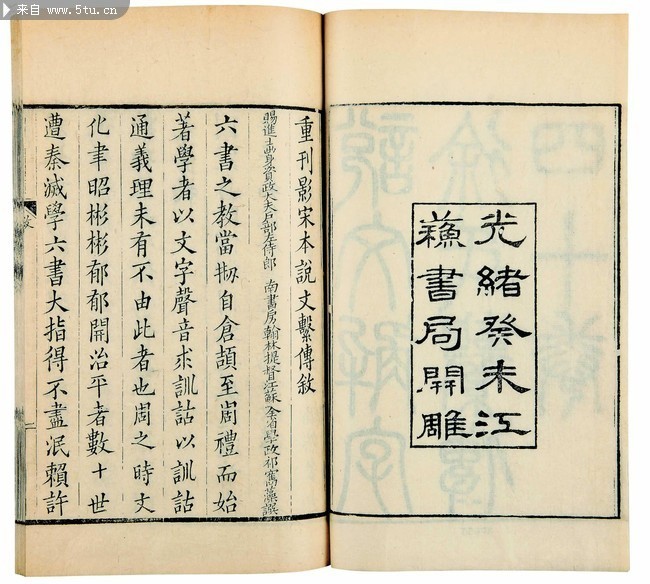 来自 www.5tu.cn
光緒癸未江
蘇書局開雕
重刊影宋本說文繫傳敘
賜進士出身資政大夫戶部左侍郎 南書房翰林提督江蘇全省學政祁寯藻譔
六書之教當刱自倉頡至周禮而始
著學者以文字聲音求訓詁以訓詁
通義理未有不由此者也周之時文
化聿昭彬彬郁郁開治平者數十世
遭秦滅學六書大指得不盡泯賴許